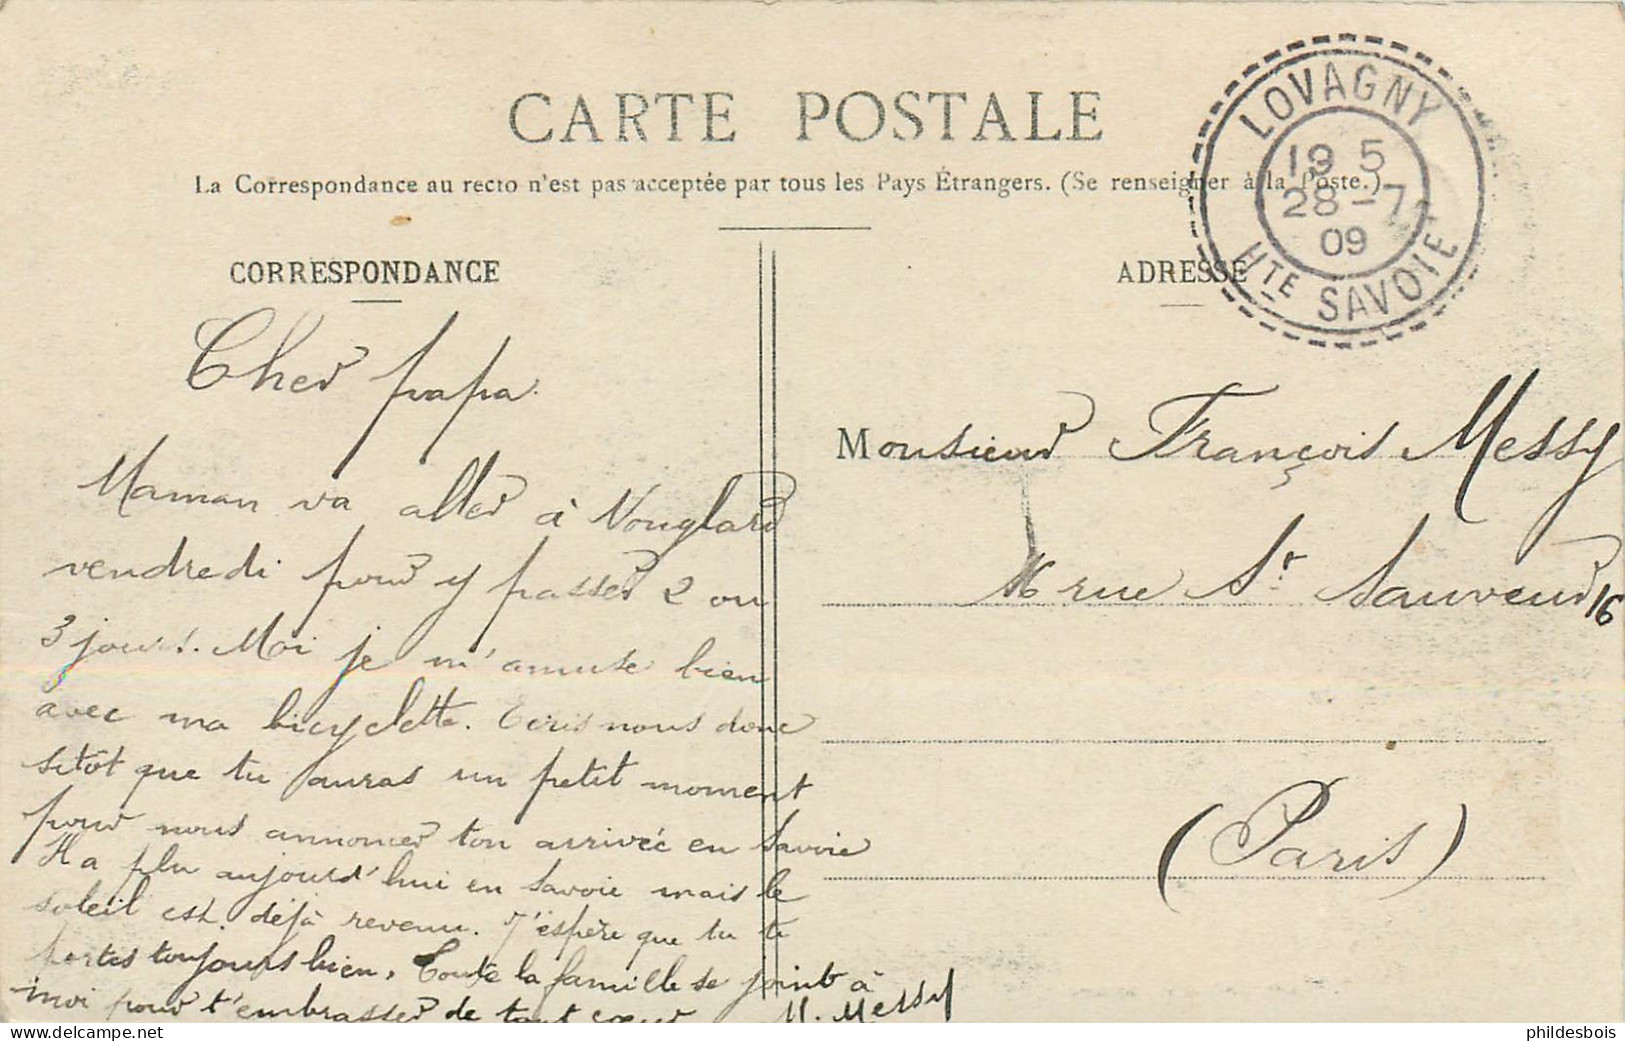 CARTE POSTALE
La Correspondance au recto n'est pas acceptée par tous les Pays Étrangers. (Se renseigner à la Poste.)
LOVAGNY
19 5
28-7
09
HTE SAVOIE
CORRESPONDANCE
Cher papa.
Maman va aller à Nouglard
vendredi pour y passer 2 ou
3 jours. Moi je m'amuse bien
avec ma bicyclette. Ecris nous donc
sitot que tu auras un petit moment
pour nous annoncer ton arrivée en Savoie
Il a plu aujourd'hui en Savoie mais le
soleil est déjà revenu. J'espère que tu te
portes toujours bien. Toute la famille se joint à
moi pour t'embrasser de tout coeur
M. Messy
ADRESSE
Monsieur François Messy
16 rue St. Sauveur 16
(Paris)
delcampe.net
phildesbois